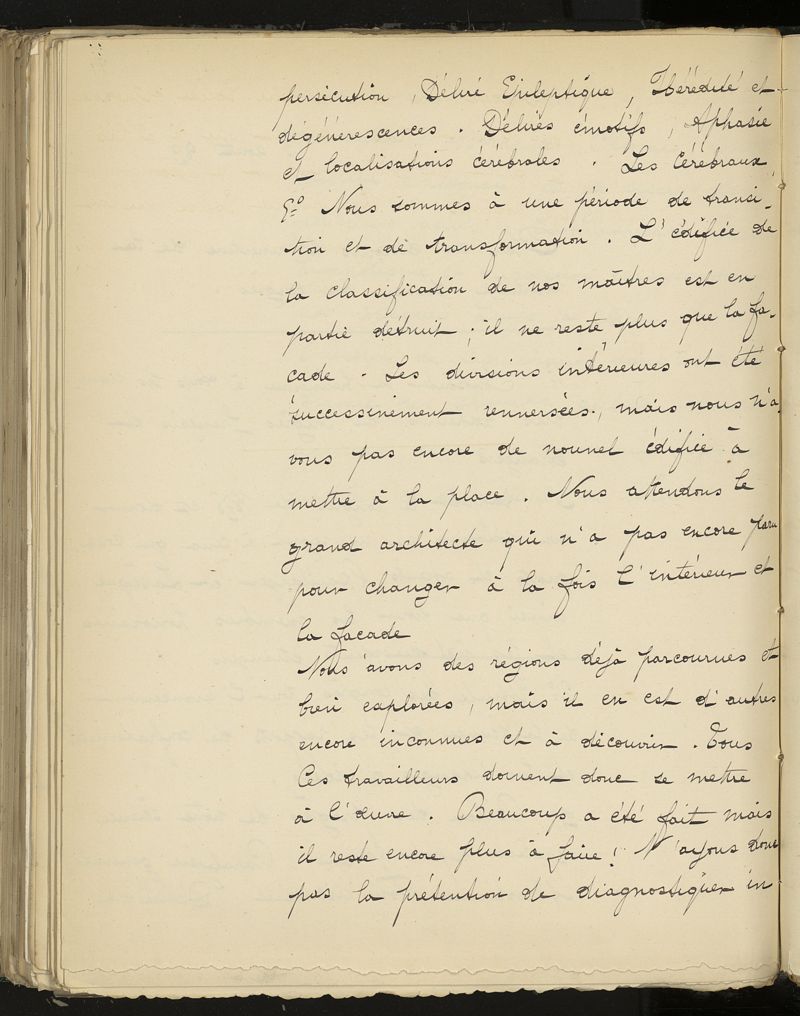 persécution, Délire Epileptique, Hérédité et
dégénérescences. Délires émotifs, Aphasie
et localisations cérébrales. Les Cérébraux,
Nous sommes à une période de transi-
tion et de transformation. L'édifiée de
la classification de nos maîtres est en
partie détruit; il ne reste plus que la fa-
cade. Les divisions intérieures ont été
successivement renversées, mais nous n'a-
vons pas encore de nouvel édifiée à
mettre à la place. Nous attendons le
grand architecte qui n'a pas encore paru
pour changer à la fois l'intérieur et
la façade
Nous avons des régions déjà parcourues et
bien explorées, mais il en est d'autres
encore inconnues et à découvrir. Tous
les travailleurs doivent donc se mettre
à l'œuvre. Beaucoup a été fait mais
il reste encore plus à faire! N'ayons donc
pas la prétention de diagnostiquer in